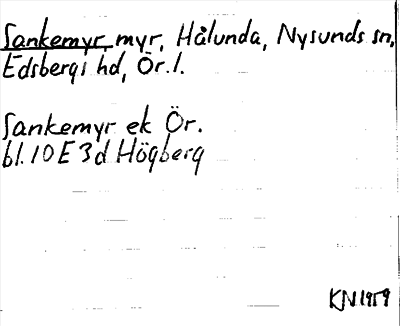 Sankemyr, myr, Hålunda, Nysunds sn,
Edsbergs hd, Ör.l.
Sankemyr ek Ör.
bl.10E3d Högberg
KN1959